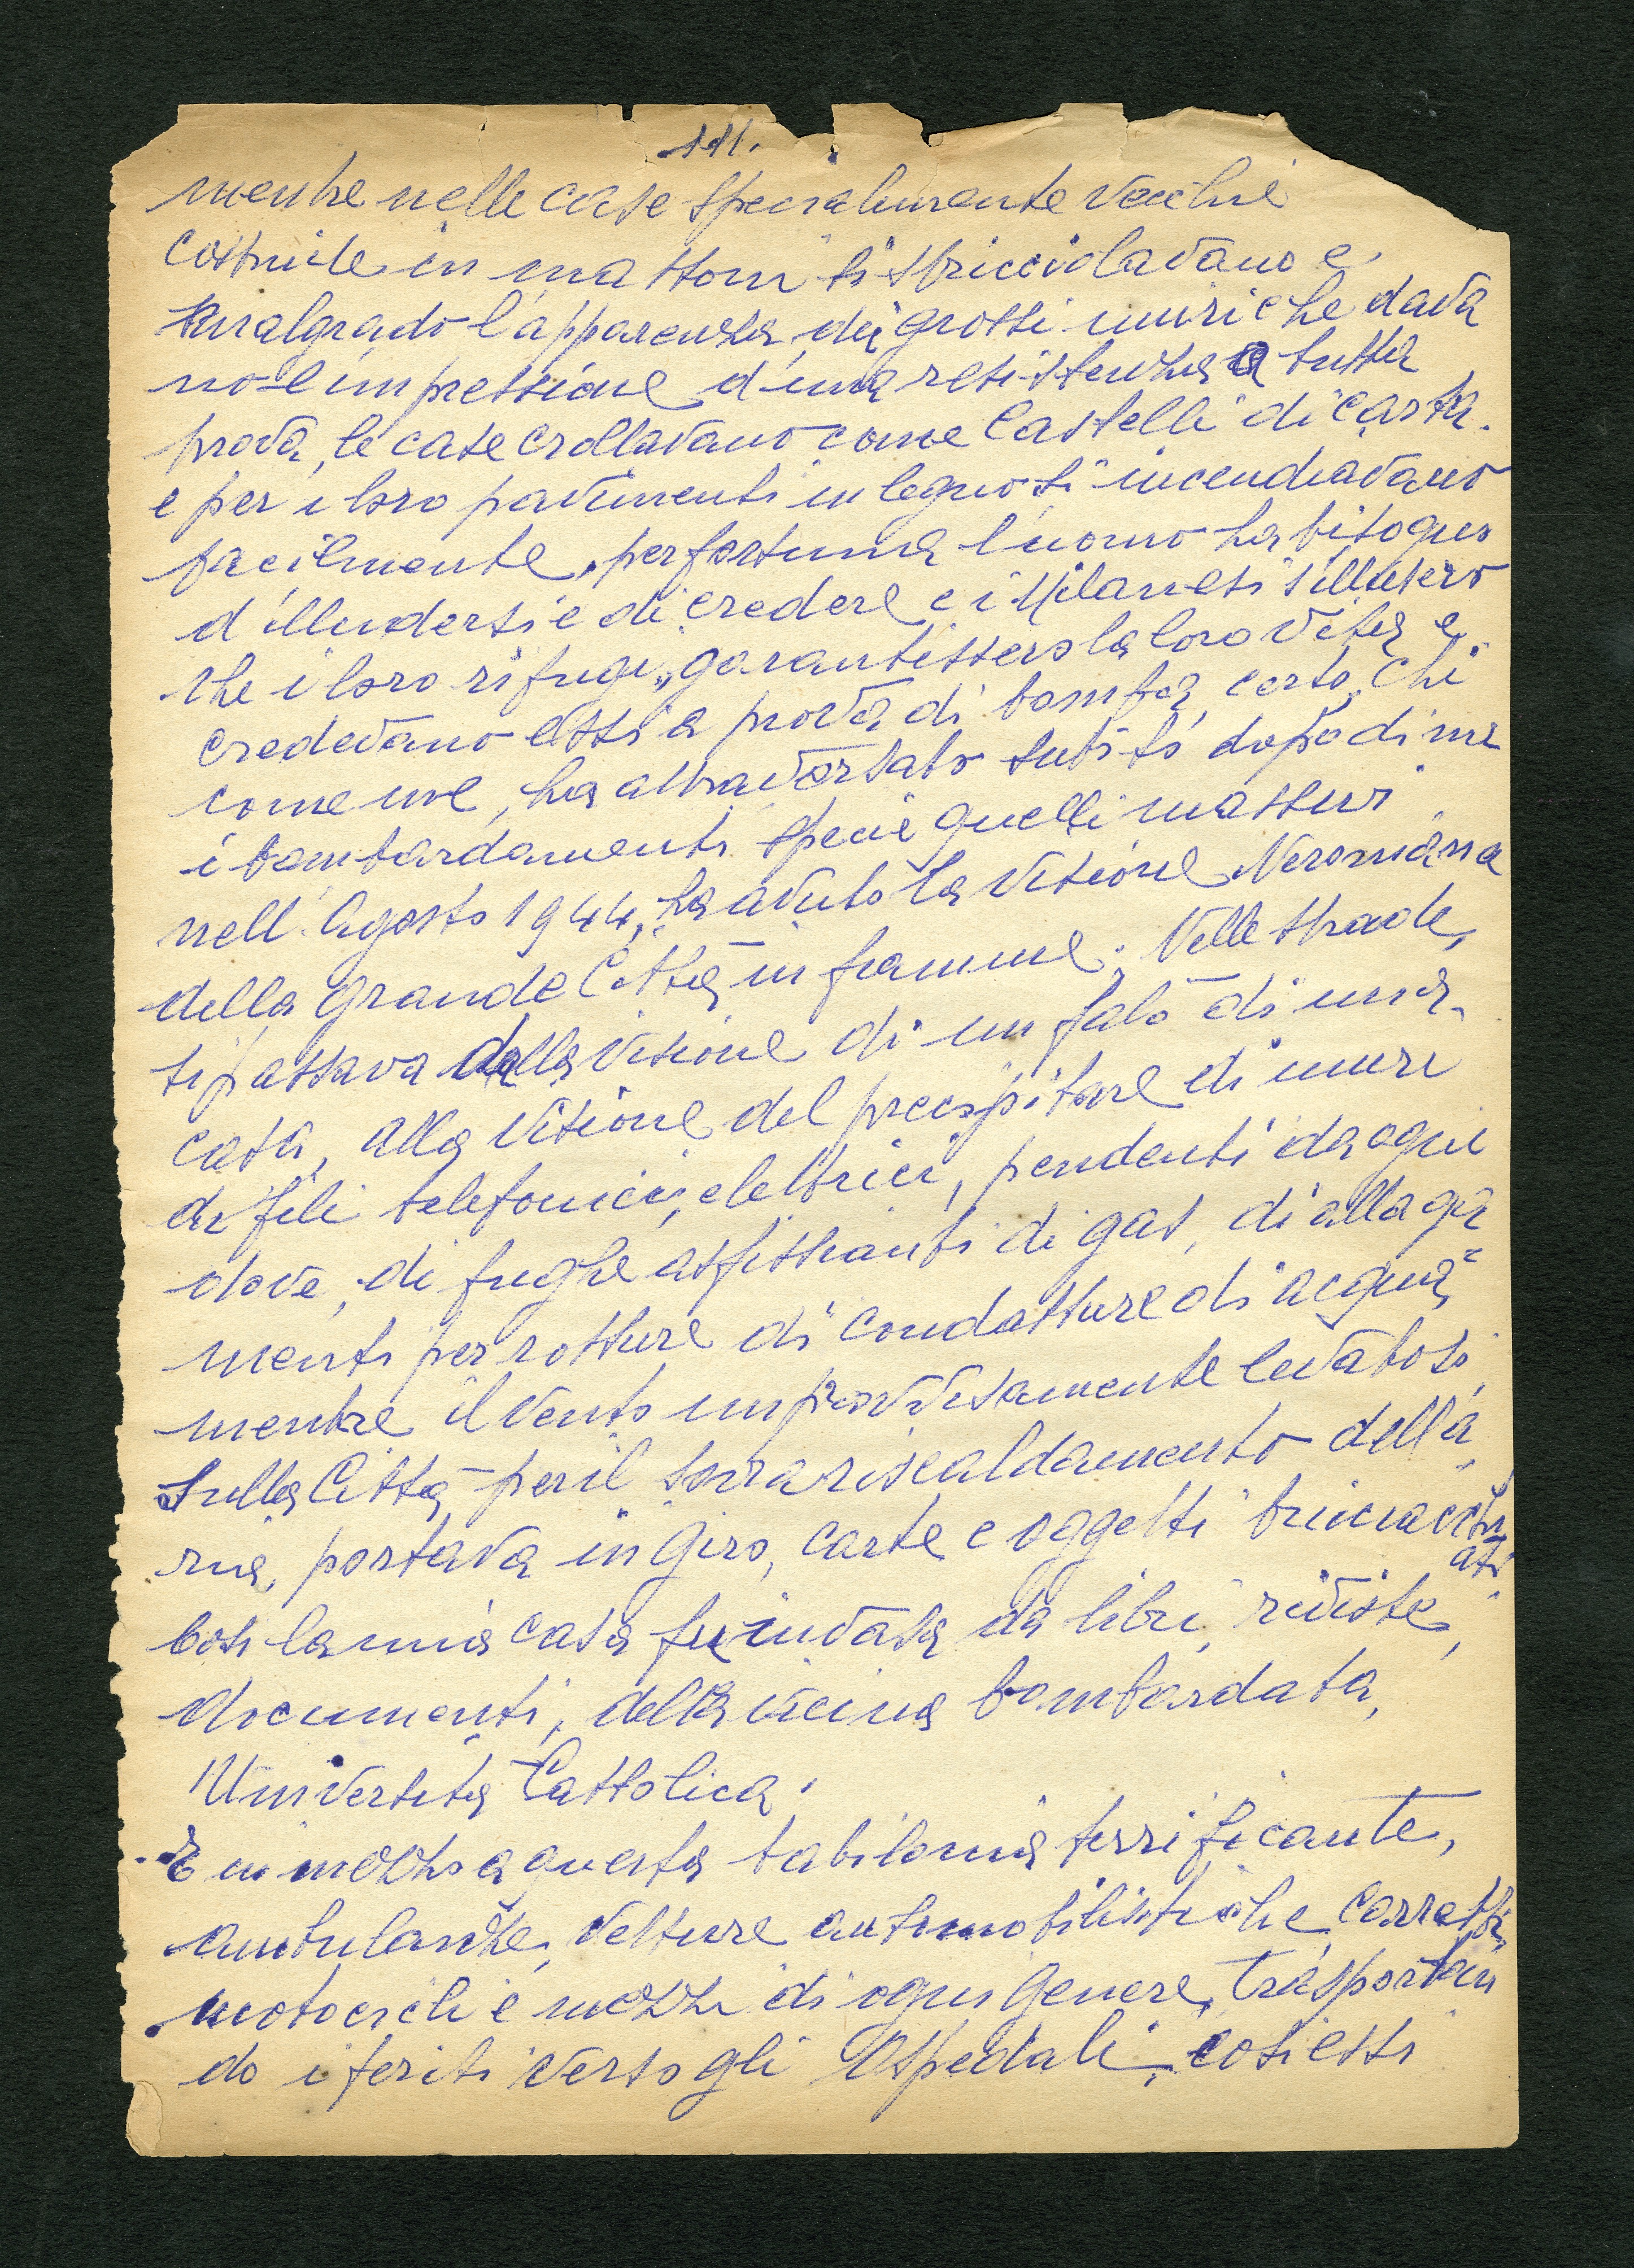 111.
mentre nelle case specialmente vecchie
costruite in mattoni si sbricciolavano e,
malgrado l'apparenza dei grossi muri che dava
no l'impressione d'una resistenza a tutta
prova, le case crollavano come Castelli di carta.
e per i loro pavimenti in legno si incendiavano
facilmente, per fortuna l'uomo ha bisogno
d'illudersi e di credere e i Milanesi s'illusero
che i loro rifugi, garantissero la loro vita e
credevano essi a prova di bomba, certo, chi
come me, ha attraversato subito dopo di me
i bombardamenti specie quelli massivi
nell'Agosto 1944, ha avuto la visione Neroniana
della grande Città in fiamme. Nelle strade,
si passava dalla visione di un falò di una
casa, alla visione del precipitare di muri
di fili telefonici, elettrici, pendenti da ogni
dove, di fughe asfissianti di gas, di allaga
menti per rotture di condutture di acqua,
mentre il vento improvvisamente levatosi
sulla Città per il sovrariscaldamento dell'a
ria, portava in giro, carte e oggetti bruciacchi
ati.
Così la mia casa fu invasa da libri, riviste,
documenti, della vicina bombardata,
Università Cattolica.
E in mezzo a questa babilonia terrificante,
ambulanze, vetture automobilistiche, carretti,
motocicli e mezzi di ogni genere, trasportan
do i feriti verso gli Ospedali, così essi